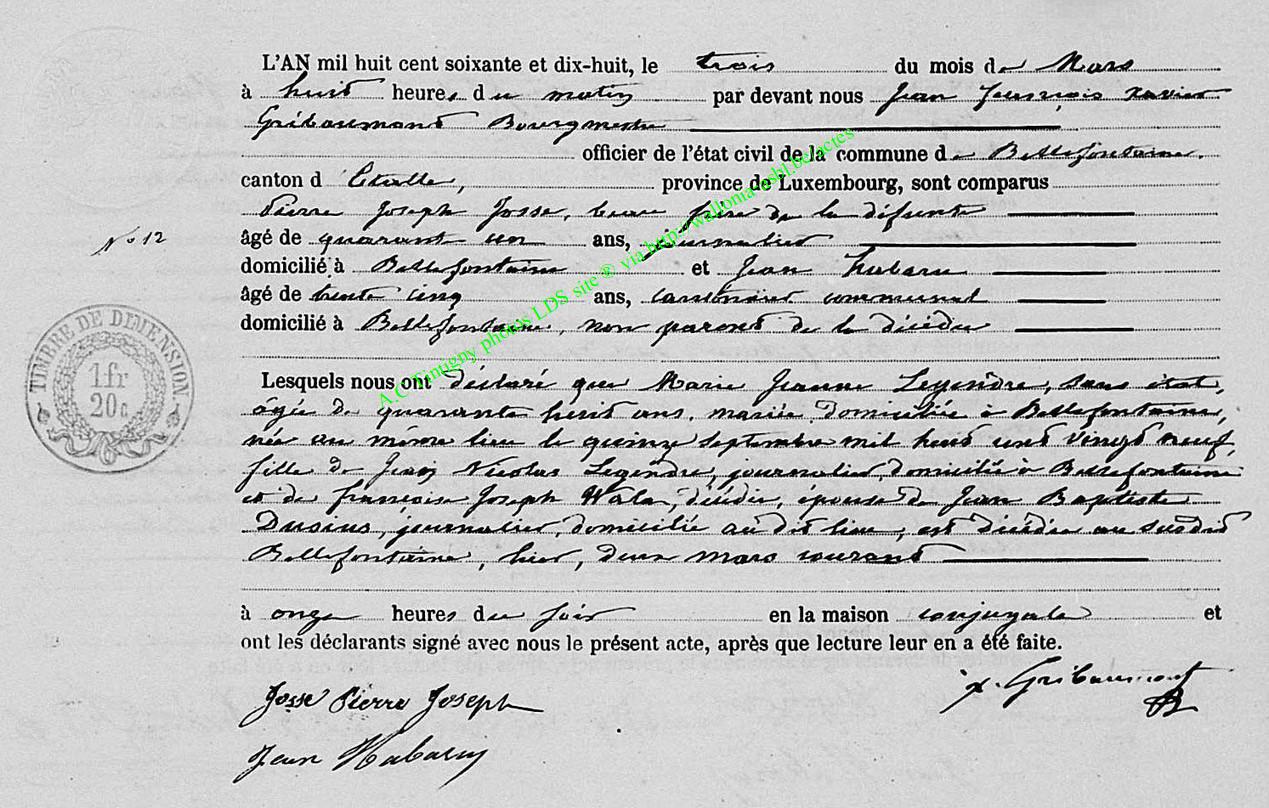 L'AN mil huit cent soixante et dix-huit, le trois du mois de Mars
à huit heures du matin par devant nous Jean François Xavier
Gribaumont Bourgmestre
officier de l'état civil de la commune de Bellefontaine.
canton d' Etalle, province de Luxembourg, sont comparus
Pierre Joseph Josse, beau frère de la défunte
N° 12
âgé de quarant un ans, Journalier
domicilié à Bellefontaine et Jean Habaru
âgé de trente cinq ans, cantonnier communal
domicilié à Bellefontaine, non parent de la décédée
TIMBRE DE DIMENSION
1fr
20c
Lesquels nous ont déclaré que Marie Jeanne Legendre, sans état,
âgée de quarante huit ans, mariée domiciliée à Bellefontaine,
née au même lieu le quinze septembre mil huit cent vingt neuf,
fille de Jean Nicolas Legendre, journalier, domicilié à Bellefontaine
et de françoise Joseph décédée, épouse de Jean Baptiste
journalier, domicilié au dit lieu, est décédée au susdit
Bellefontaine, hier, deux mars courant
à onze heures du soir en la maison conjugale et
ont les déclarants signé avec nous le présent acte, après que lecture leur en a été faite.
x. Gribaumont
Josse Pierre Joseph
Jean Habaru
A.C. Tintigny photos LDS site ® via http://wallomarshl.be/actes